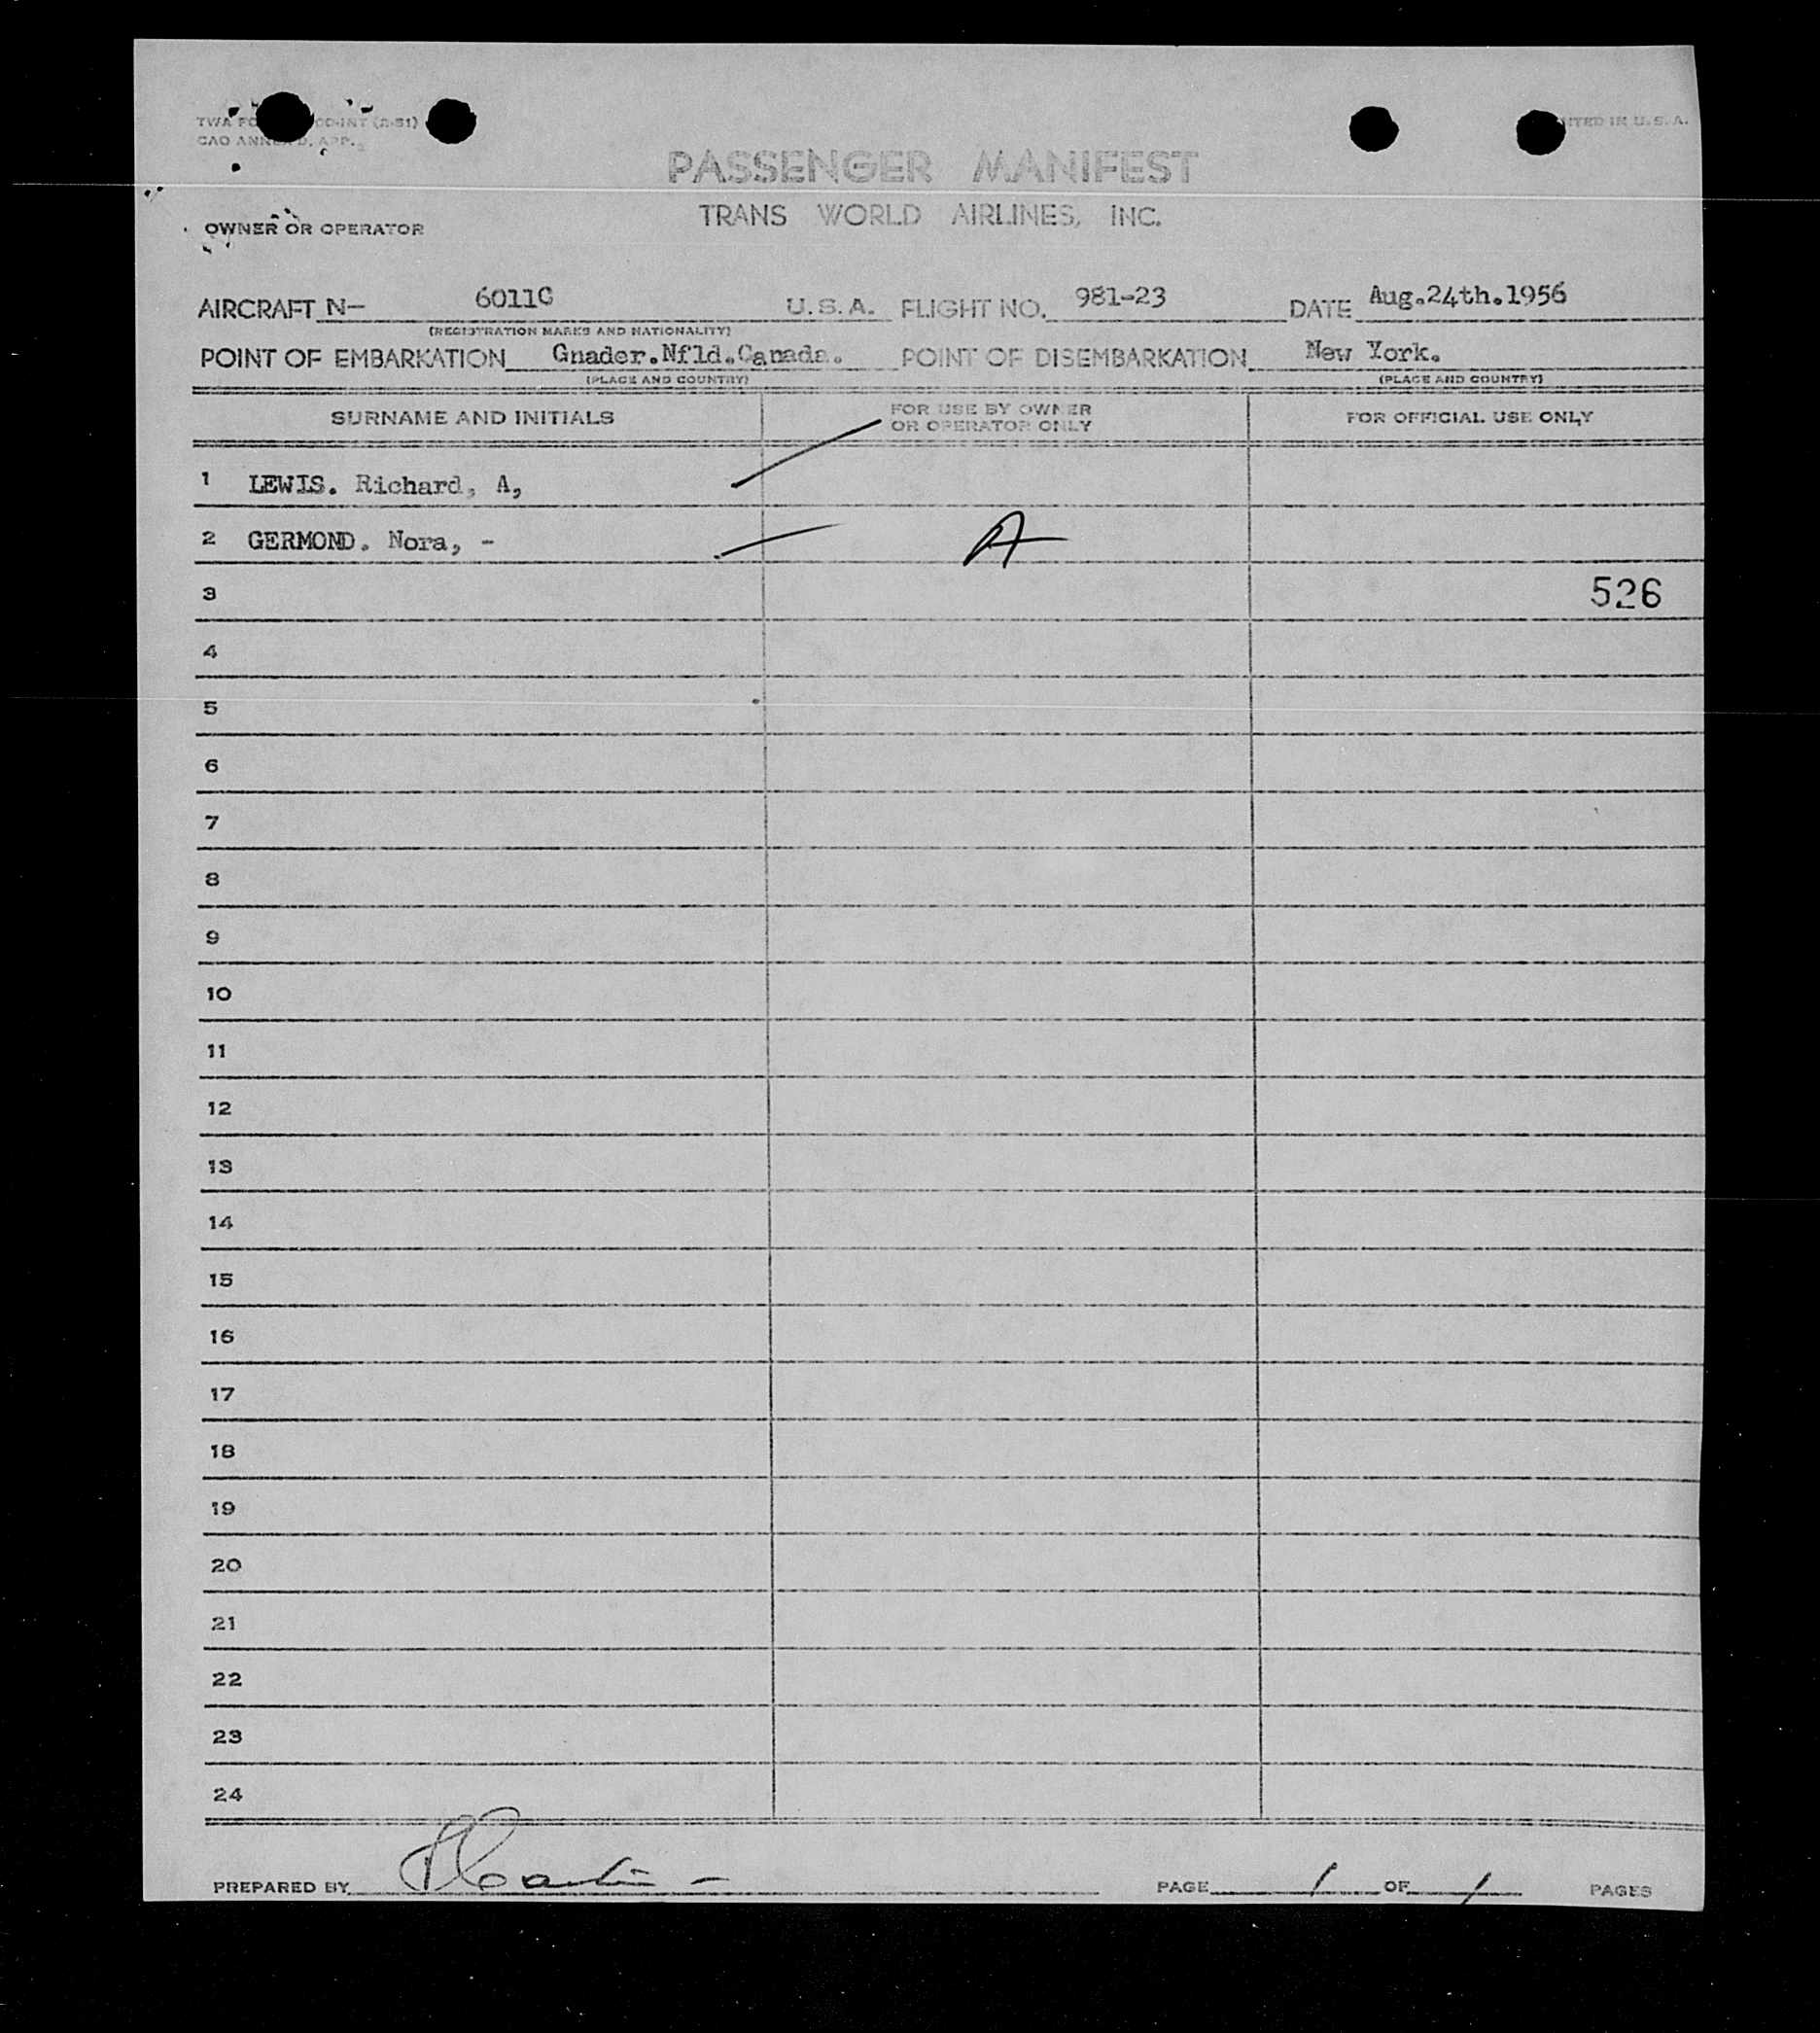 TWA (2-51) PRINTED IN U.S.A.
CAO APP.
PASSENGER MANIFEST
TRANS WORLD AIRLINES, INC.
OWNER OR OPERATOR
AIRCRAFT N- 6011C U.S.A. FLIGHT NO. 981-23 DATE Aug.24th.1956
(REGISTRATION MARKS AND NATIONALITY)
POINT OF EMBARKATION Gnader.Nfld.Canada. POINT OF DISEMBARKATION New York.
(PLACE AND COUNTRY) (PLACE AND COUNTRY)
SURNAME AND INITIALS FOR USE BY OWNER OR OPERATOR ONLY FOR OFFICIAL USE ONLY
1 LEWIS. Richard, A,
2 GERMOND. Nora, - A
3 526
4
5
6
7
8
9
10
11
12
13
14
15
16
17
18
19
20
21
22
23
24
PREPARED BY PAGE 1 OF 1 PAGES